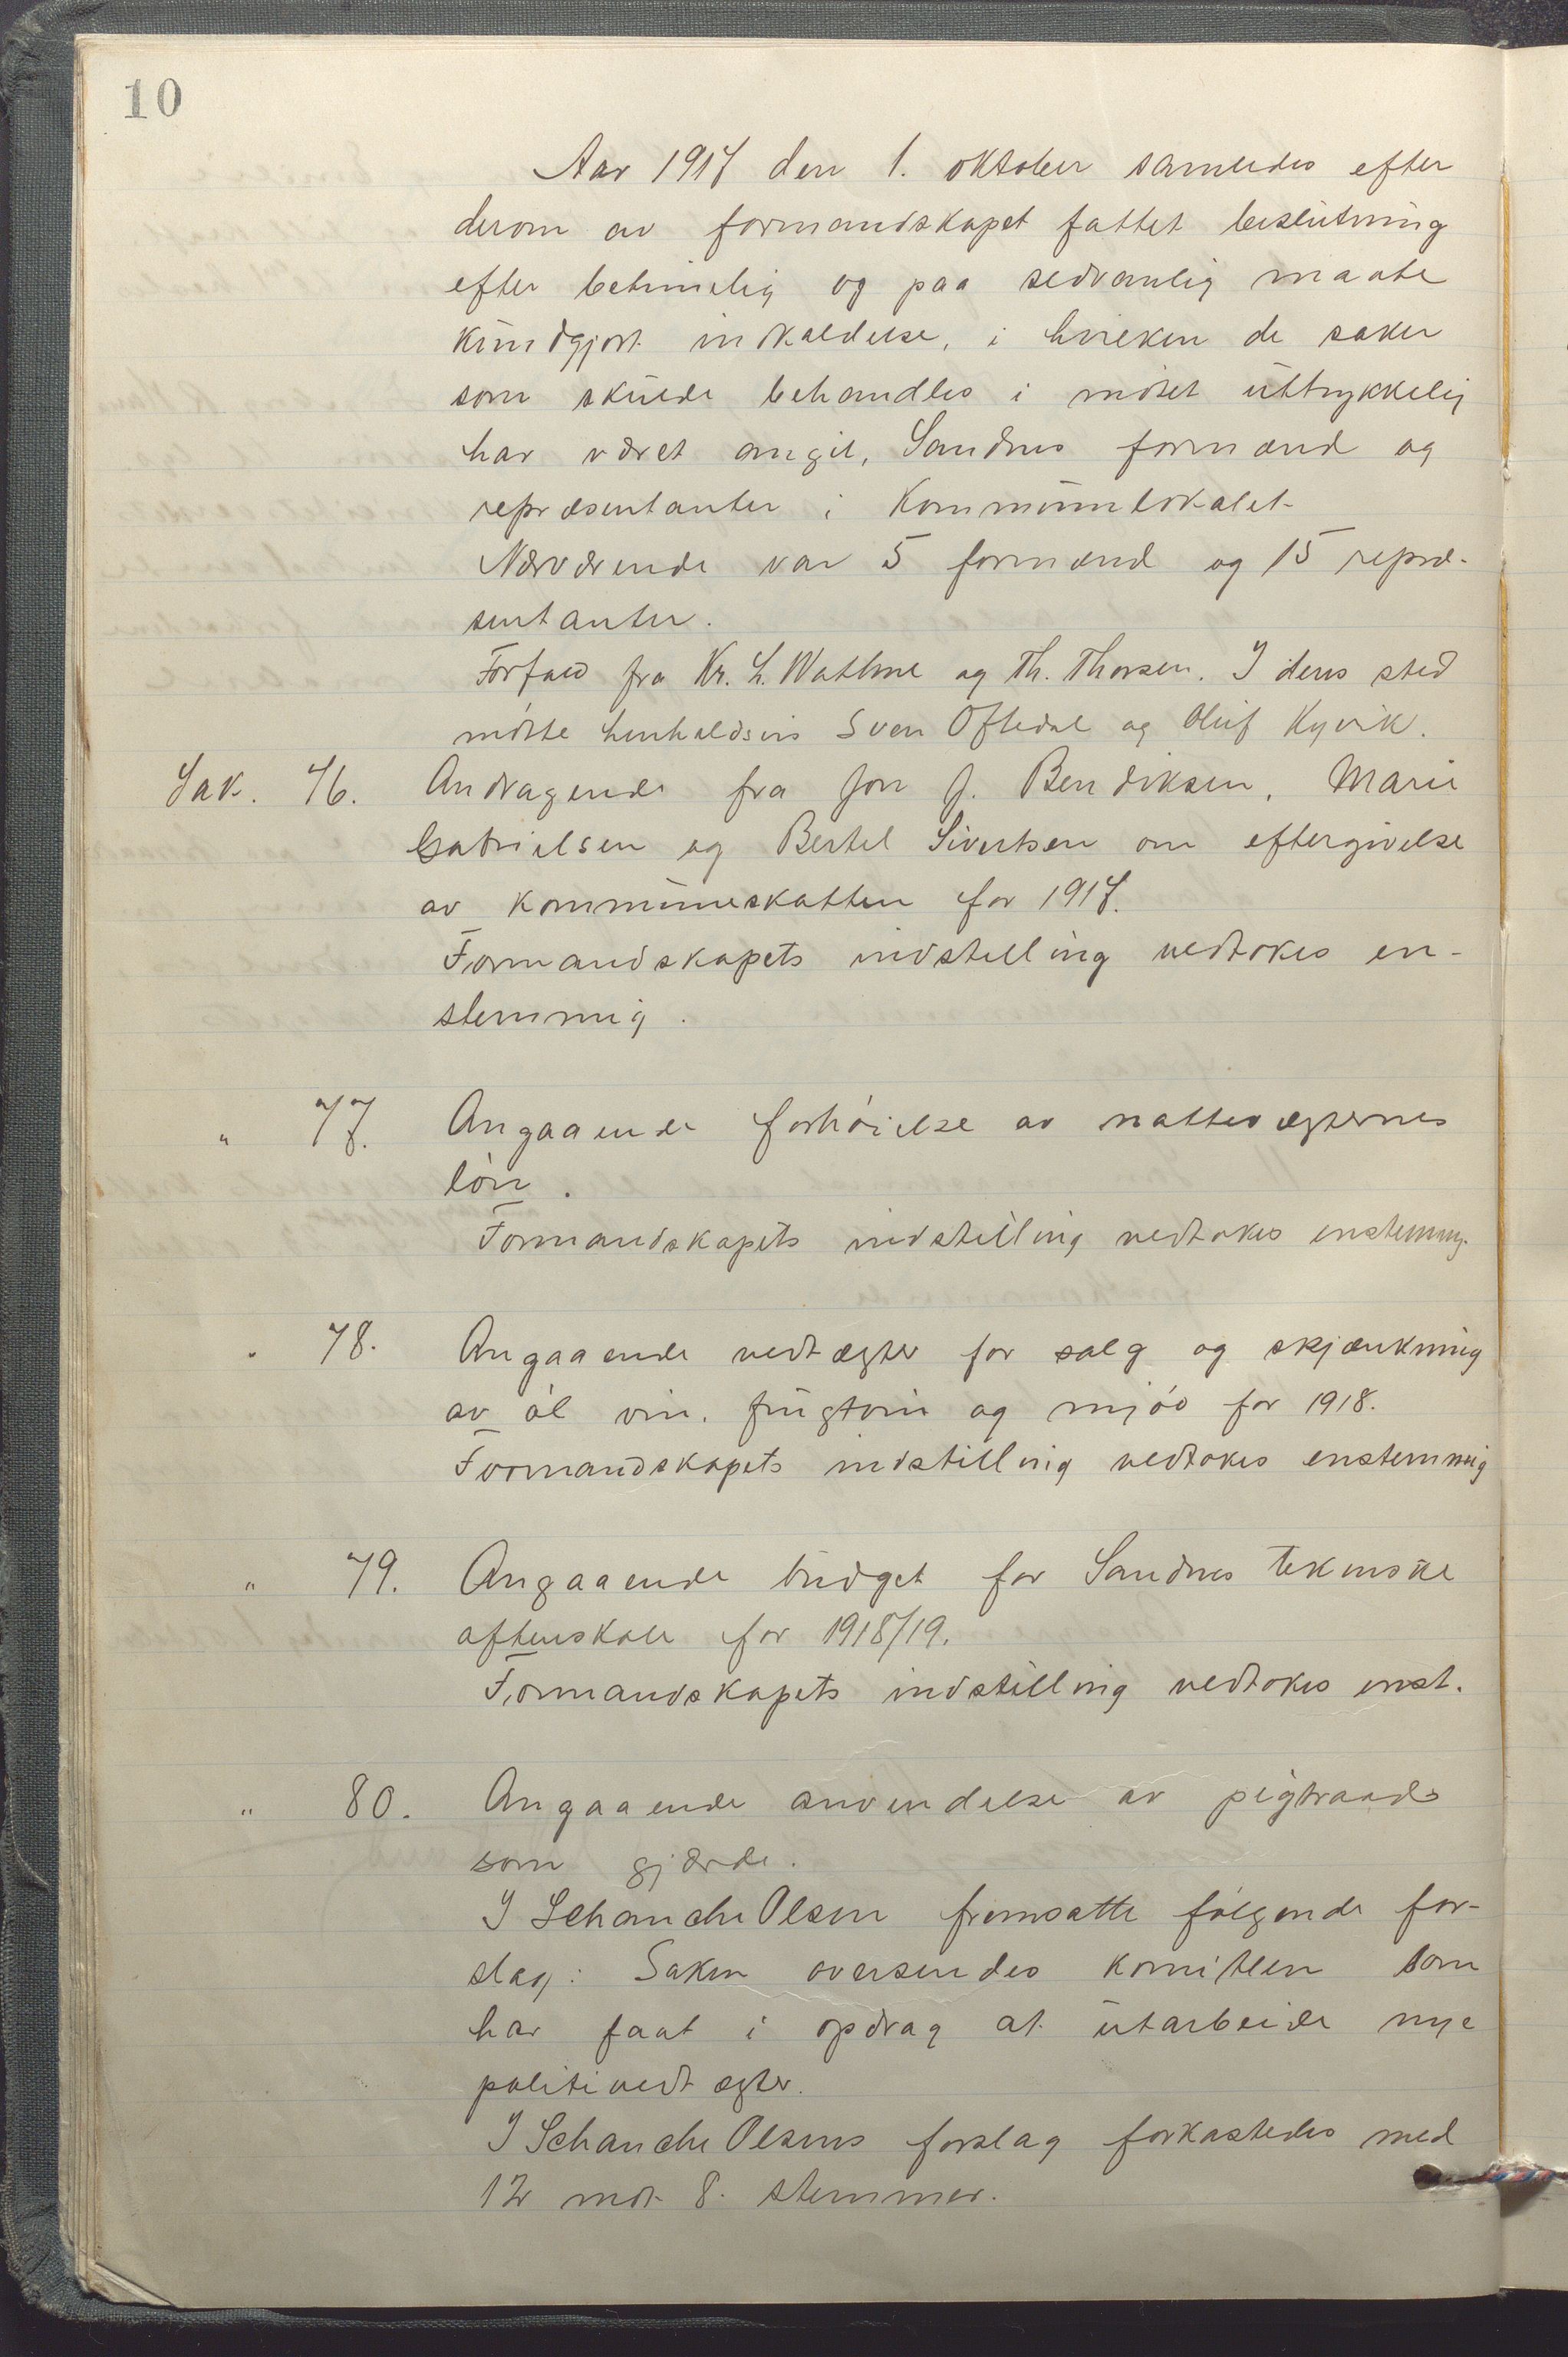 10
Aar 1917 den 1. oktober samledes efter
derom av formandskapet fattet beslutning
efter betimelig og paa sedvanlig maate
kundgjort indkaldelse, i hvilken de saker
som skulde behandles i mötet uttrykkelig
har været angit, Sandnes formænd og
repræsentanter i Kommunelokalet.
Nærværende var 5 formænd og 15 repræ-
sentanter.
Forfald fra Kr. L. Wathne og Th. Thorsen. I deres sted
mötte henholdsvis Sven Oftedal og Oluf Kyvik.
Sak. 76. Andragende fra Jon J. Bendiksen, Marie
Gabrielsen og Bertel Sivertsen om eftergivelse
av kommuneskatten for 1917.
Formandskapets indstilling vedtokes en-
stemmig.
" 77. Angaaende forhöielse av nattevægternes
lön.
Formandskapets indstilling vedtokes enstemmig.
" 78. Angaaende vedtægter for salg og skjænkning
av öl vin, frugtvin og mjöd for 1918.
Formandskapets indstilling vedtokes enstemmig
" 79. Angaaende budget for Sandnes tekniske
aftenskole for 1918/19.
Formandskapets indstilling vedtokes enst.
" 80. Angaaende anvendelse av pigtraad
som gjærde.
I Schanche Olsen fremsatte fölgende for-
slag: Saken oversendes komiteen som
har faat i opdrag at utarbeide nye
politivedtægter.
I Schanche Olsens forslag forkastedes med
12 mot 8 stemmer.